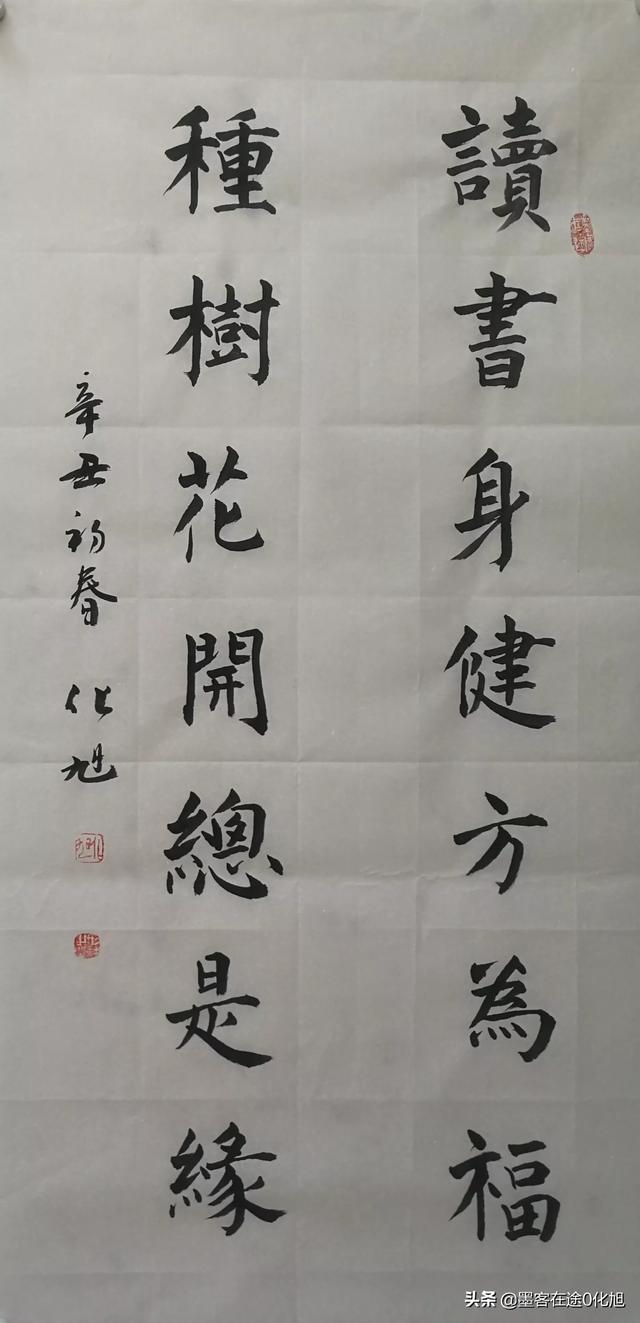 讀書身健方為福
種樹花開總是緣
辛丑初春 化旭
头条 @墨客在途0化旭